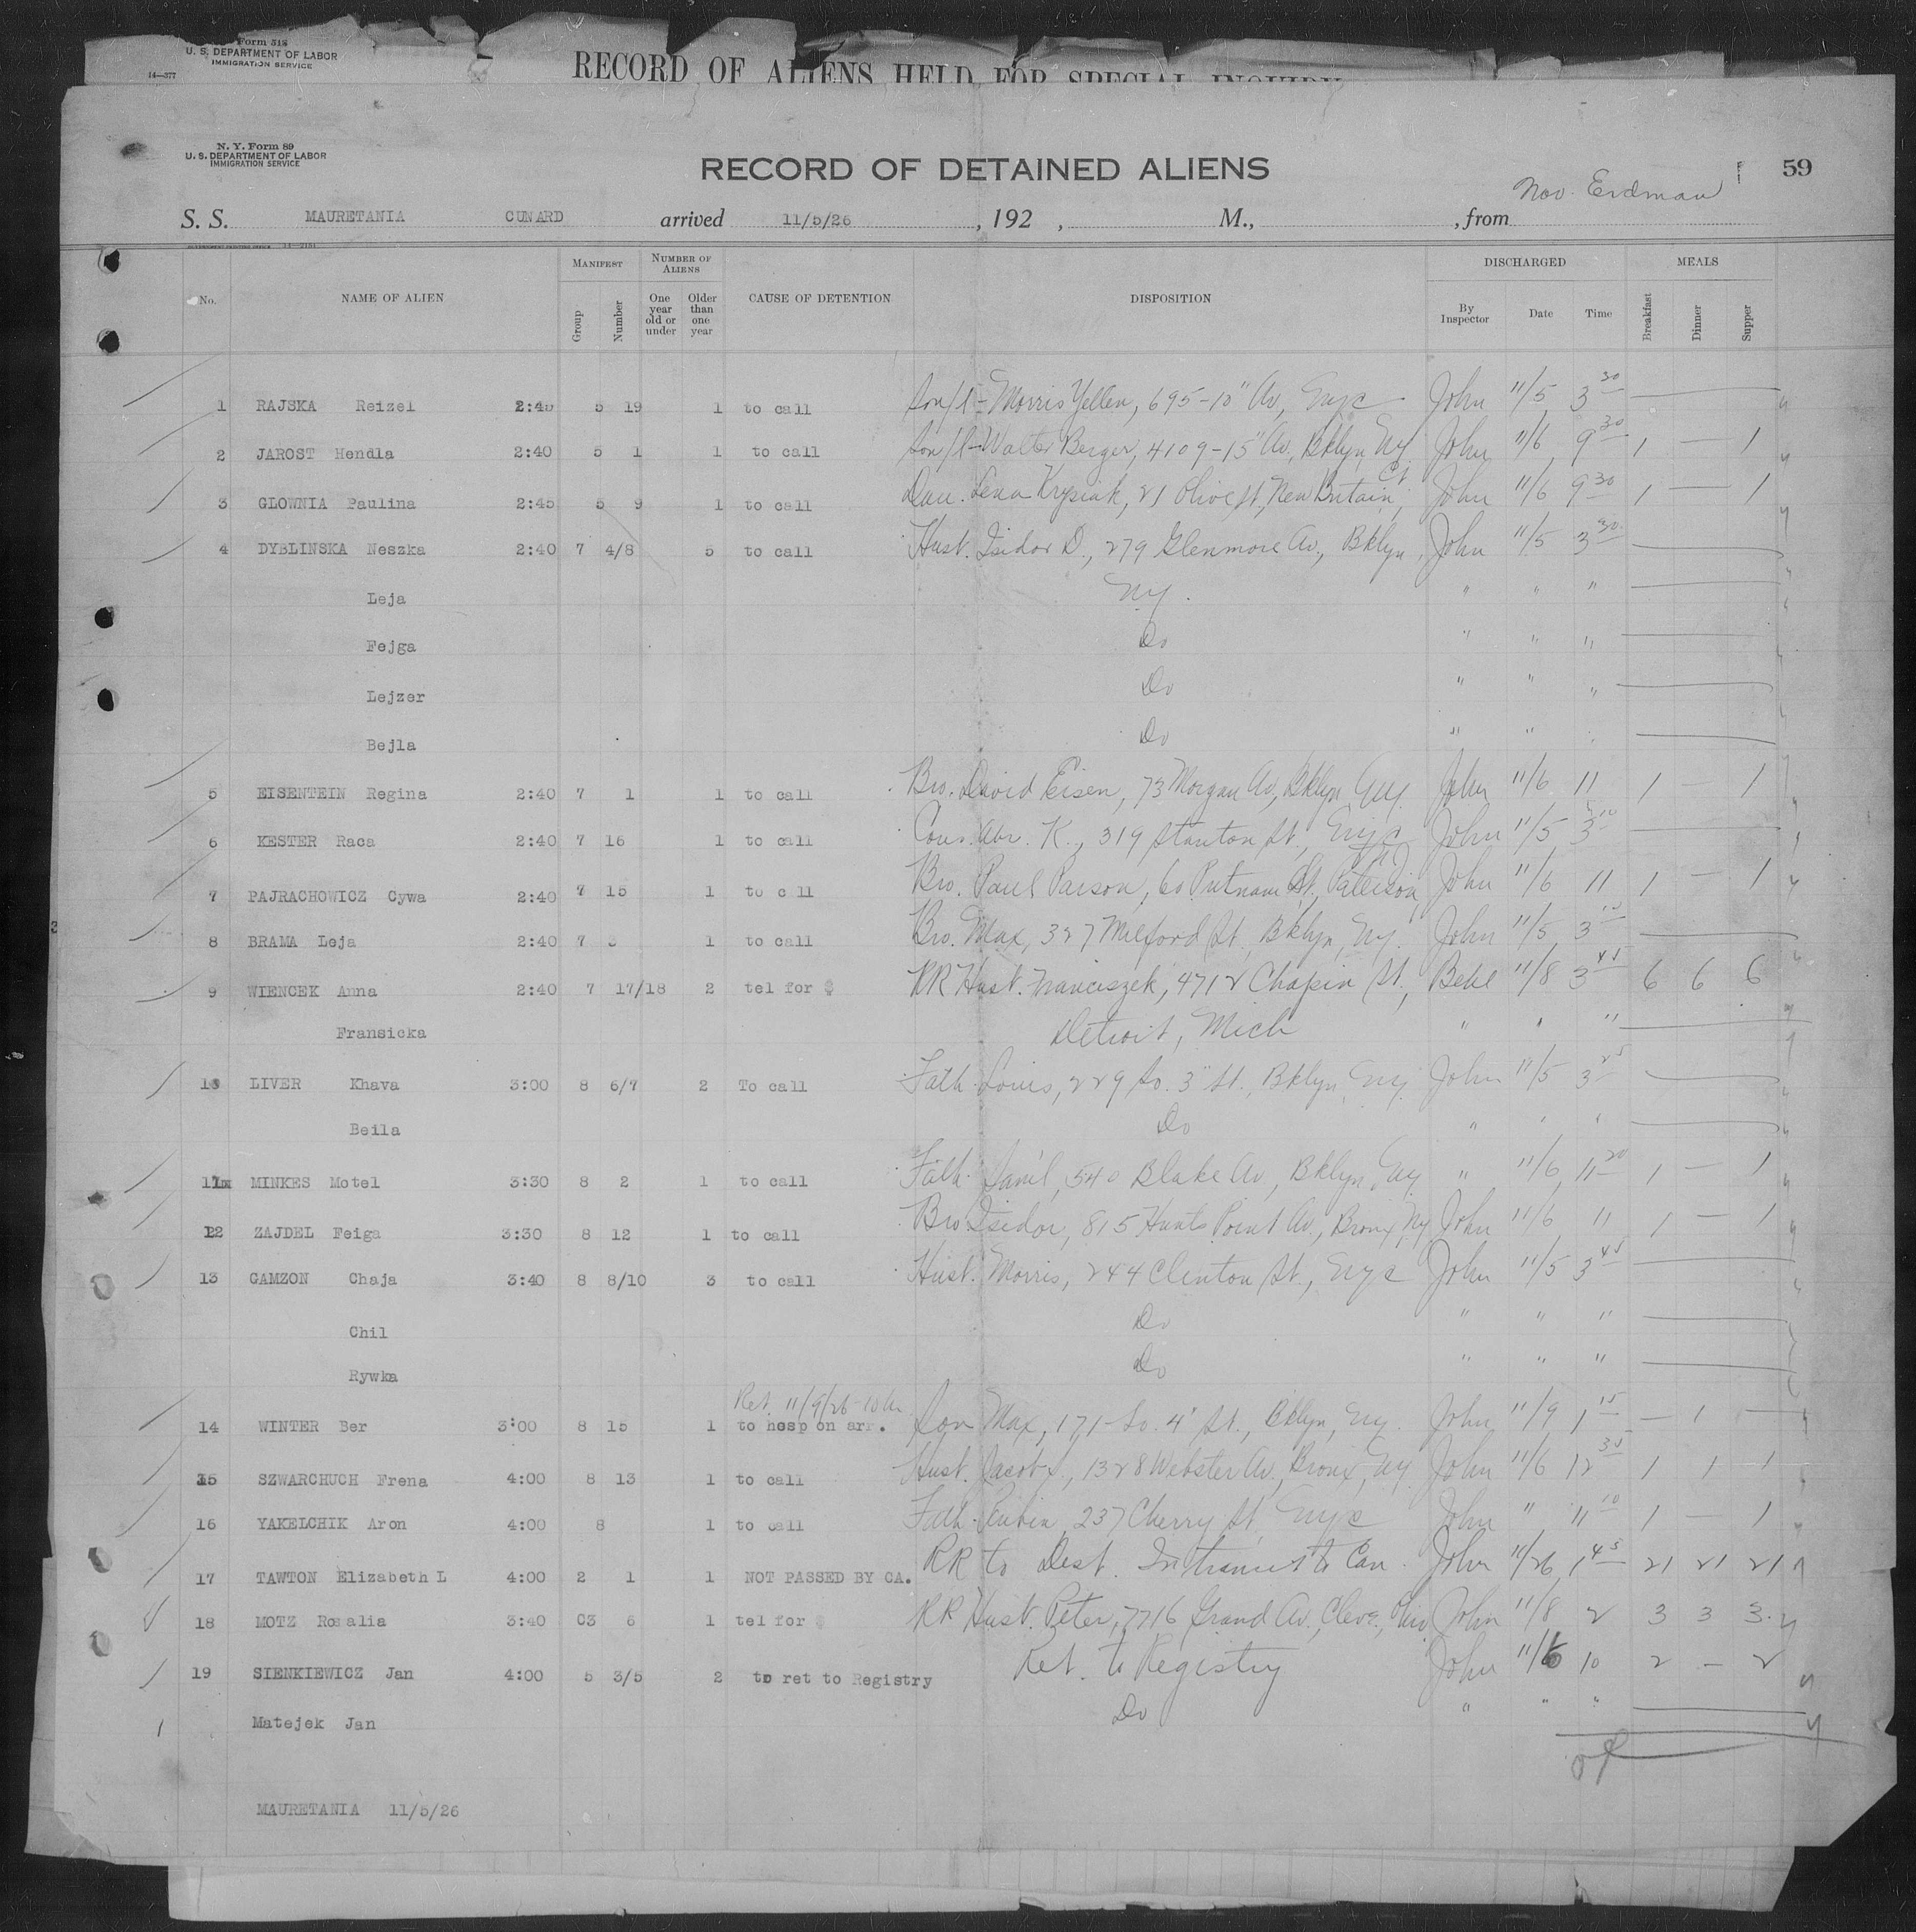 Form 518
U. S. DEPARTMENT OF LABOR
IMMIGRATION SERVICE
14—377
RECORD OF ALIENS HELD FOR SPECIAL INQUIRY
N. Y. Form 89
U. S. DEPARTMENT OF LABOR
IMMIGRATION SERVICE
RECORD OF DETAINED ALIENS
59
Nov. Erdman
S. S. MAURETANIA CUNARD arrived 11/5/26 , 192 , M., , from
GOVERNMENT PRINTING OFFICE 14—2151
No. NAME OF ALIEN MANIFEST Group Number NUMBER OF ALIENS One year old or under Older than one year CAUSE OF DETENTION DISPOSITION DISCHARGED By Inspector Date Time MEALS Breakfast Dinner Supper
1 RAJSKA Reizel 2:45 5 19 1 to call Son/l - Morris Yellen, 695-10" Av, Nyc John 11/5 3 30
2 JAROST Hendla 2:40 5 1 1 to call Son/l - Walter Berger, 4109-15" Av, Bklyn Ny John 11/6 9 30 1 — 1
3 GLOWNIA Paulina 2:45 5 9 1 to call Dau. Lena Krysiak, 21 Olive St, New Britain, Ct John 11/6 9 30 1 — 1
4 DYBLINSKA Neszka 2:40 7 4/8 5 to call Husb. Isidor D., 279 Glenmore Av., Bklyn John 11/5 3
Leja Ny. " " "
Fejga Do " " "
Lejzer Do " " "
Bejla Do " "
5 EISENTEIN Regina 2:40 7 1 1 to call Bro. David Eisen, 73 Morgan Av, Bklyn Ny. John 11/6 11 1 1
6 KESTER Raca 2:40 7 16 1 to call Cous. Abr. K., 319 Stanton St., Nyc John 11/5 3
7 PAJRACHOWICZ Cywa 2:40 7 15 1 to c ll Bro. Paul Parson, 60 Putnam St., Paterson, NJ John 11/6 11 1 — 1
8 BRAMA Leja 2:40 7 1 to call Bro. Max, 327 Milford St. Bklyn, Ny. John 11/5 3
9 WIENCEK Anna 2:40 7 17/18 2 tel for $ RR Husb. Franciszek, 4712 Chapin St., Bekl 11/8 3 45 6 6 6
Fransicka Detroit, Mich " " "
10 LIVER Khava 3:00 8 6/7 2 To call Fath Louis, 229 So. 3" St., Bklyn, Ny John 11/5 3 25
Beila Do " " "
11 MINKES Motel 3:30 8 2 1 to call Fath. Sam'l, 540 Blake Av, Bklyn, Ny " 11/6 11 20 1 — 1
12 ZAJDEL Feiga 3:30 8 12 1 to call Bro Isidor, 815 Hunts Point Av., Bronx, Ny John 11/6 11 1 — 1
13 GAMZON Chaja 3:40 8 8/10 3 to call Husb. Morris, 244 Clinton St., Nyc John 11/5 3 45
Chil Do " " "
Rywka Do " " "
Ret. 11/9/26-10 Am
14 WINTER Ber 3:00 8 15 1 to hosp on arr. Son Max, 171-So. 4" St., Bklyn, Ny. John 11/9 1 15 — 1 —
15 SZWARCHUCH Frena 4:00 8 13 1 to call Husb. Jacob, 1328 Webster Av., Bronx, Ny John 11/6 12 35 1 1 1
16 YAKELCHIK Aron 4:00 8 1 to call Fath. Rubin, 237 Cherry St, Nyc John " 11 10 1 — 1
17 TAWTON Elizabeth L 4:00 2 1 1 NOT PASSED BY CA. RR to Dest. In transit to Can. John 11/26 1 45 21 21 21
18 MOTZ Rosalia 3:40 03 6 1 tel for $ RR Husb. Peter, 7716 Grand Av., Cleve., Ohio John 11/8 2 3 3 3
19 SIENKIEWICZ Jan 4:00 5 3/5 2 to ret to Registry Ret. to Registry John 11/6 10 2 — 2
Matejek Jan Do " " "
MAURETANIA 11/5/26